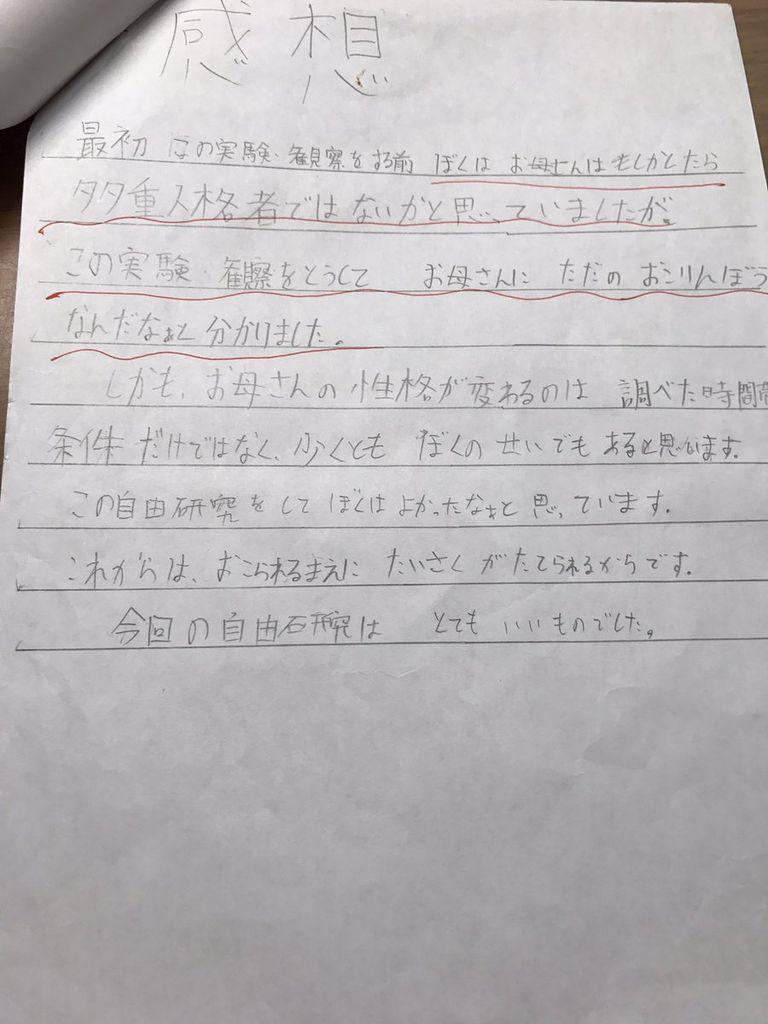 感想
最初 この実験・観察をする前 ぼくは お母さんはもしかしたら
多重人格者ではないかと思っていましたが。
この実験・観察をとうして お母さんは ただの おこりんぼう
なんだなぁと 分かりました。
しかも、お母さんの 性格が変わるのは 調べた時間帯
条件だけではなく、少くとも ぼくの せいでも あると思います。
この自由研究を して ぼくは よかったなぁと 思っています。
これからは、おこられるまえに たいさく がたてられるからです。
今回の自由研究は とても いいものでした。